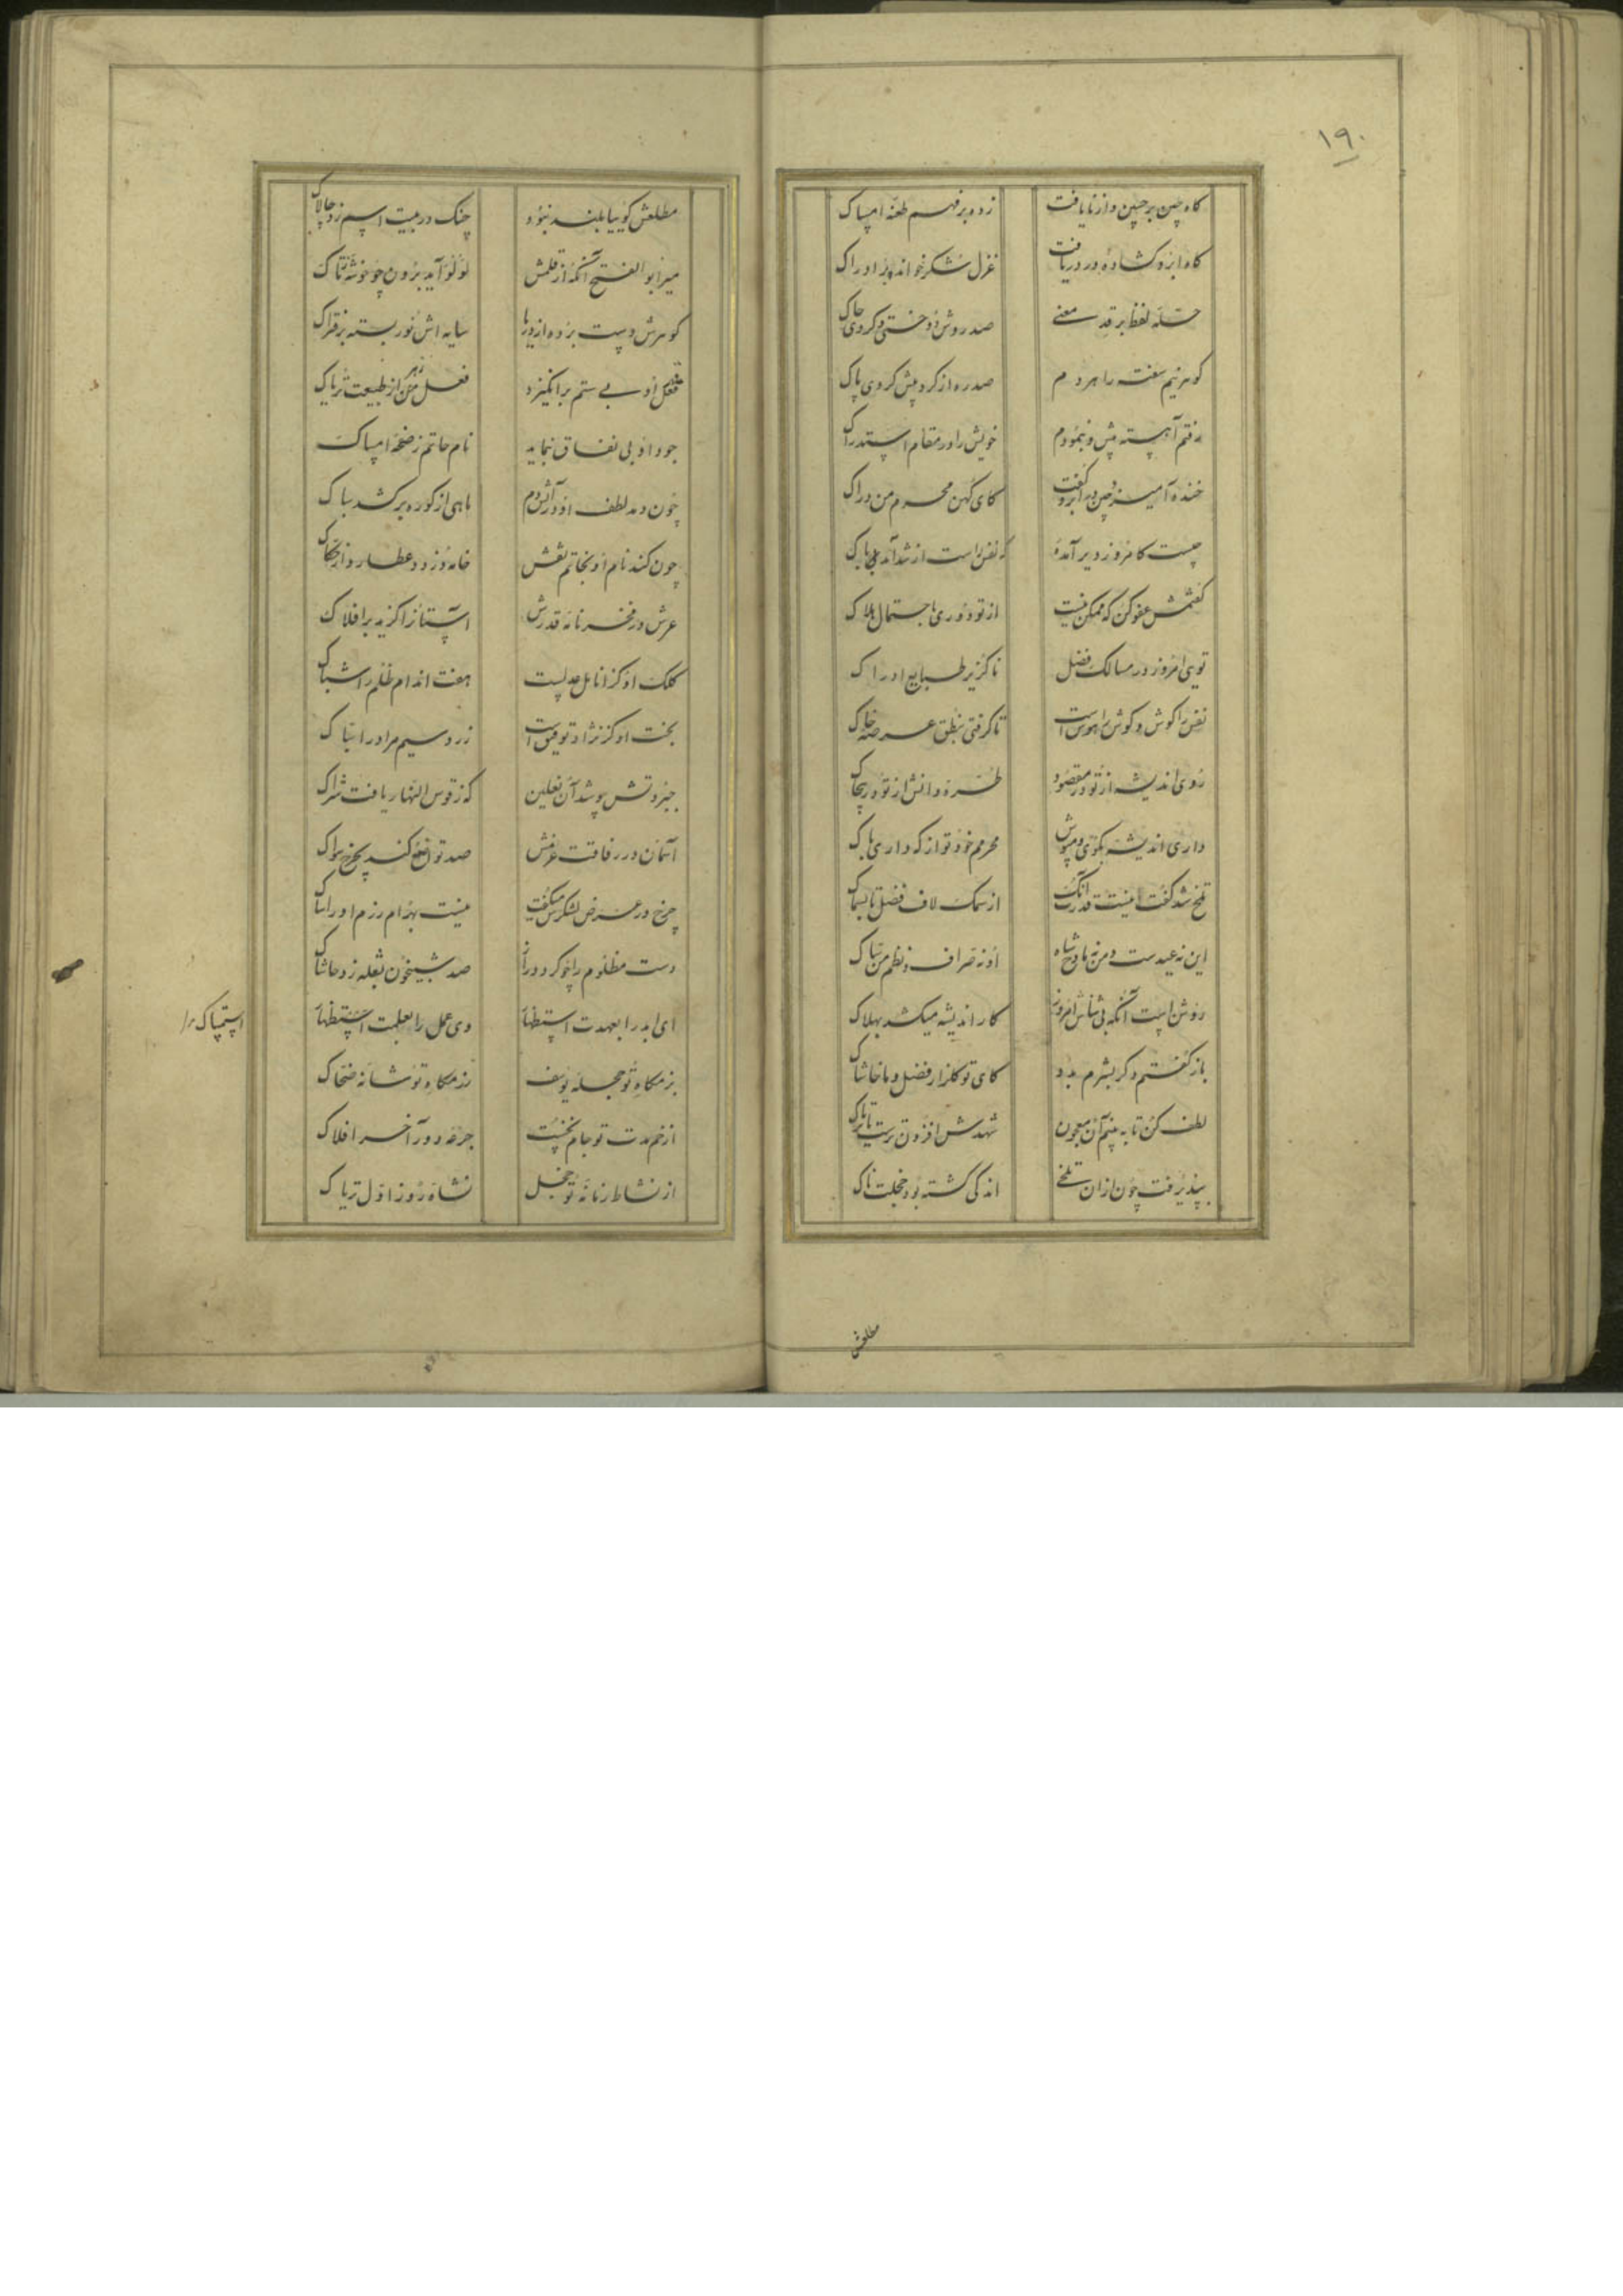 ۱۹۰
گاه چین بر جبین و از نایافت زده بر فهم طعنه امساک
گاه ابرو گشاده و در دریافت غزل شکر خوانده بر ادراک
حله لفظ بر قد معنی صد روش دوختی و کردی چاک
گوهر نیم سفته را هر دم صد ره از گرد پیش کردی پاک
رفتم آهسته پیش و بنمودم خویش را در مقام استدراک
خنده آمیز و چین در ابرو گفت کای کهن محرم من دراک
چیست کامروز دیر آمده
گفتمش عفو کن که ممکن نیست از تو دوری باحتمال هلاک
تویی امروز در مسالک فضل ناگزیر طبایع ادراک
نفس را گوش و گوش را هوس است تا گرفتی بنطق عرصه خاک
روی اندیشه از تو در مقصود طره دانش از تو در پیچاک
داری اندیشه بگوی و مپوش محرمم خود تو از که داری باک
تلخ شد گفت اینت قدر آنک از سمک لاف فضل تا بسماک
این نه عیدست و من نه مادح شاه او نه صراف و نظم من سباک
روشن است آنکه بی ثناش امروز کار اندیشه میکشد بهلاک
باز گفتم دگر بشرم بدو کای تو گلزار فضل و ما خاشاک
لطف کن تا به بینم آن معجون شهدش افزون ترست یا تریاک
بپذیرفت چون ازان تلخی اندکی گشته بود خجلت ناک
مطلعش
مطلعش گوییا بلند نبود چنگ در بیت اسم زد چالاک
میر ابوالفتح آنکه از قلمش لؤلؤ آید برون چو خوشه تاک
گوهرش دست برده از دریا سایه اش نور بسته بر فتراک
فعل او بی ستم برانگیزد فعل زهر از طبیعت تریاک
جود او بی نفاق بنماید نام حاتم ز صفحه امساک
چون دمد لطف او در آتش دم ماهی از کوره برکشد سباک
چون کند نام او بخاتم نقش خامه دزدد عطارد از حکاک
عرش در مفخر نامه قدرش آستان را گزید بر افلاک
کلک او کز انامل عدلست هفت اندام ظلم را شباک
بخت او کز نژاد توفیق است زر و سیم مراد را سباک
جبروتش بپوشد آن نعلین که ز قوس النهار یافت شراک
آسمان در رفاقت عزمش صد تواضع کند بچرخ سواک
چرخ در عرض لشکرش میگفت نیست بهرام رزم او را
دست مظلوم را چو کرد دراز صد شبیخون بقله زد خاشاک
ای ابد را بعهدت استظهار وی عمل را بعلمت استظهار
استمساک
بزمگاه تو حجله یوسف رزمگاه تو شانه ضحاک
از خم مدت تو جام نخست جرعه دور آخر افلاک
از نشاط زمانه تو خجل نشاه روز اول تریاک